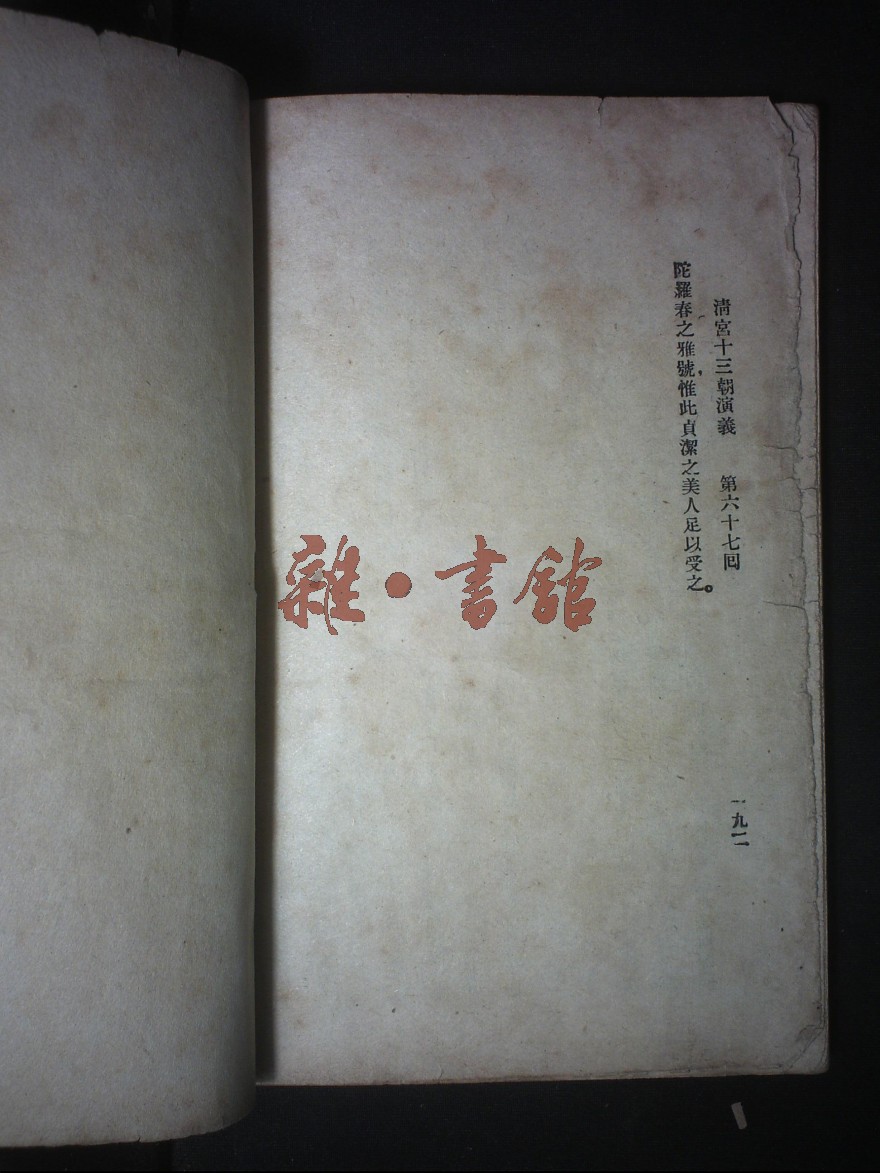 清宮十三朝演義　第六十七回　一九二
陀羅春之雅號,惟此貞潔之美人足以受之。
雜·書館